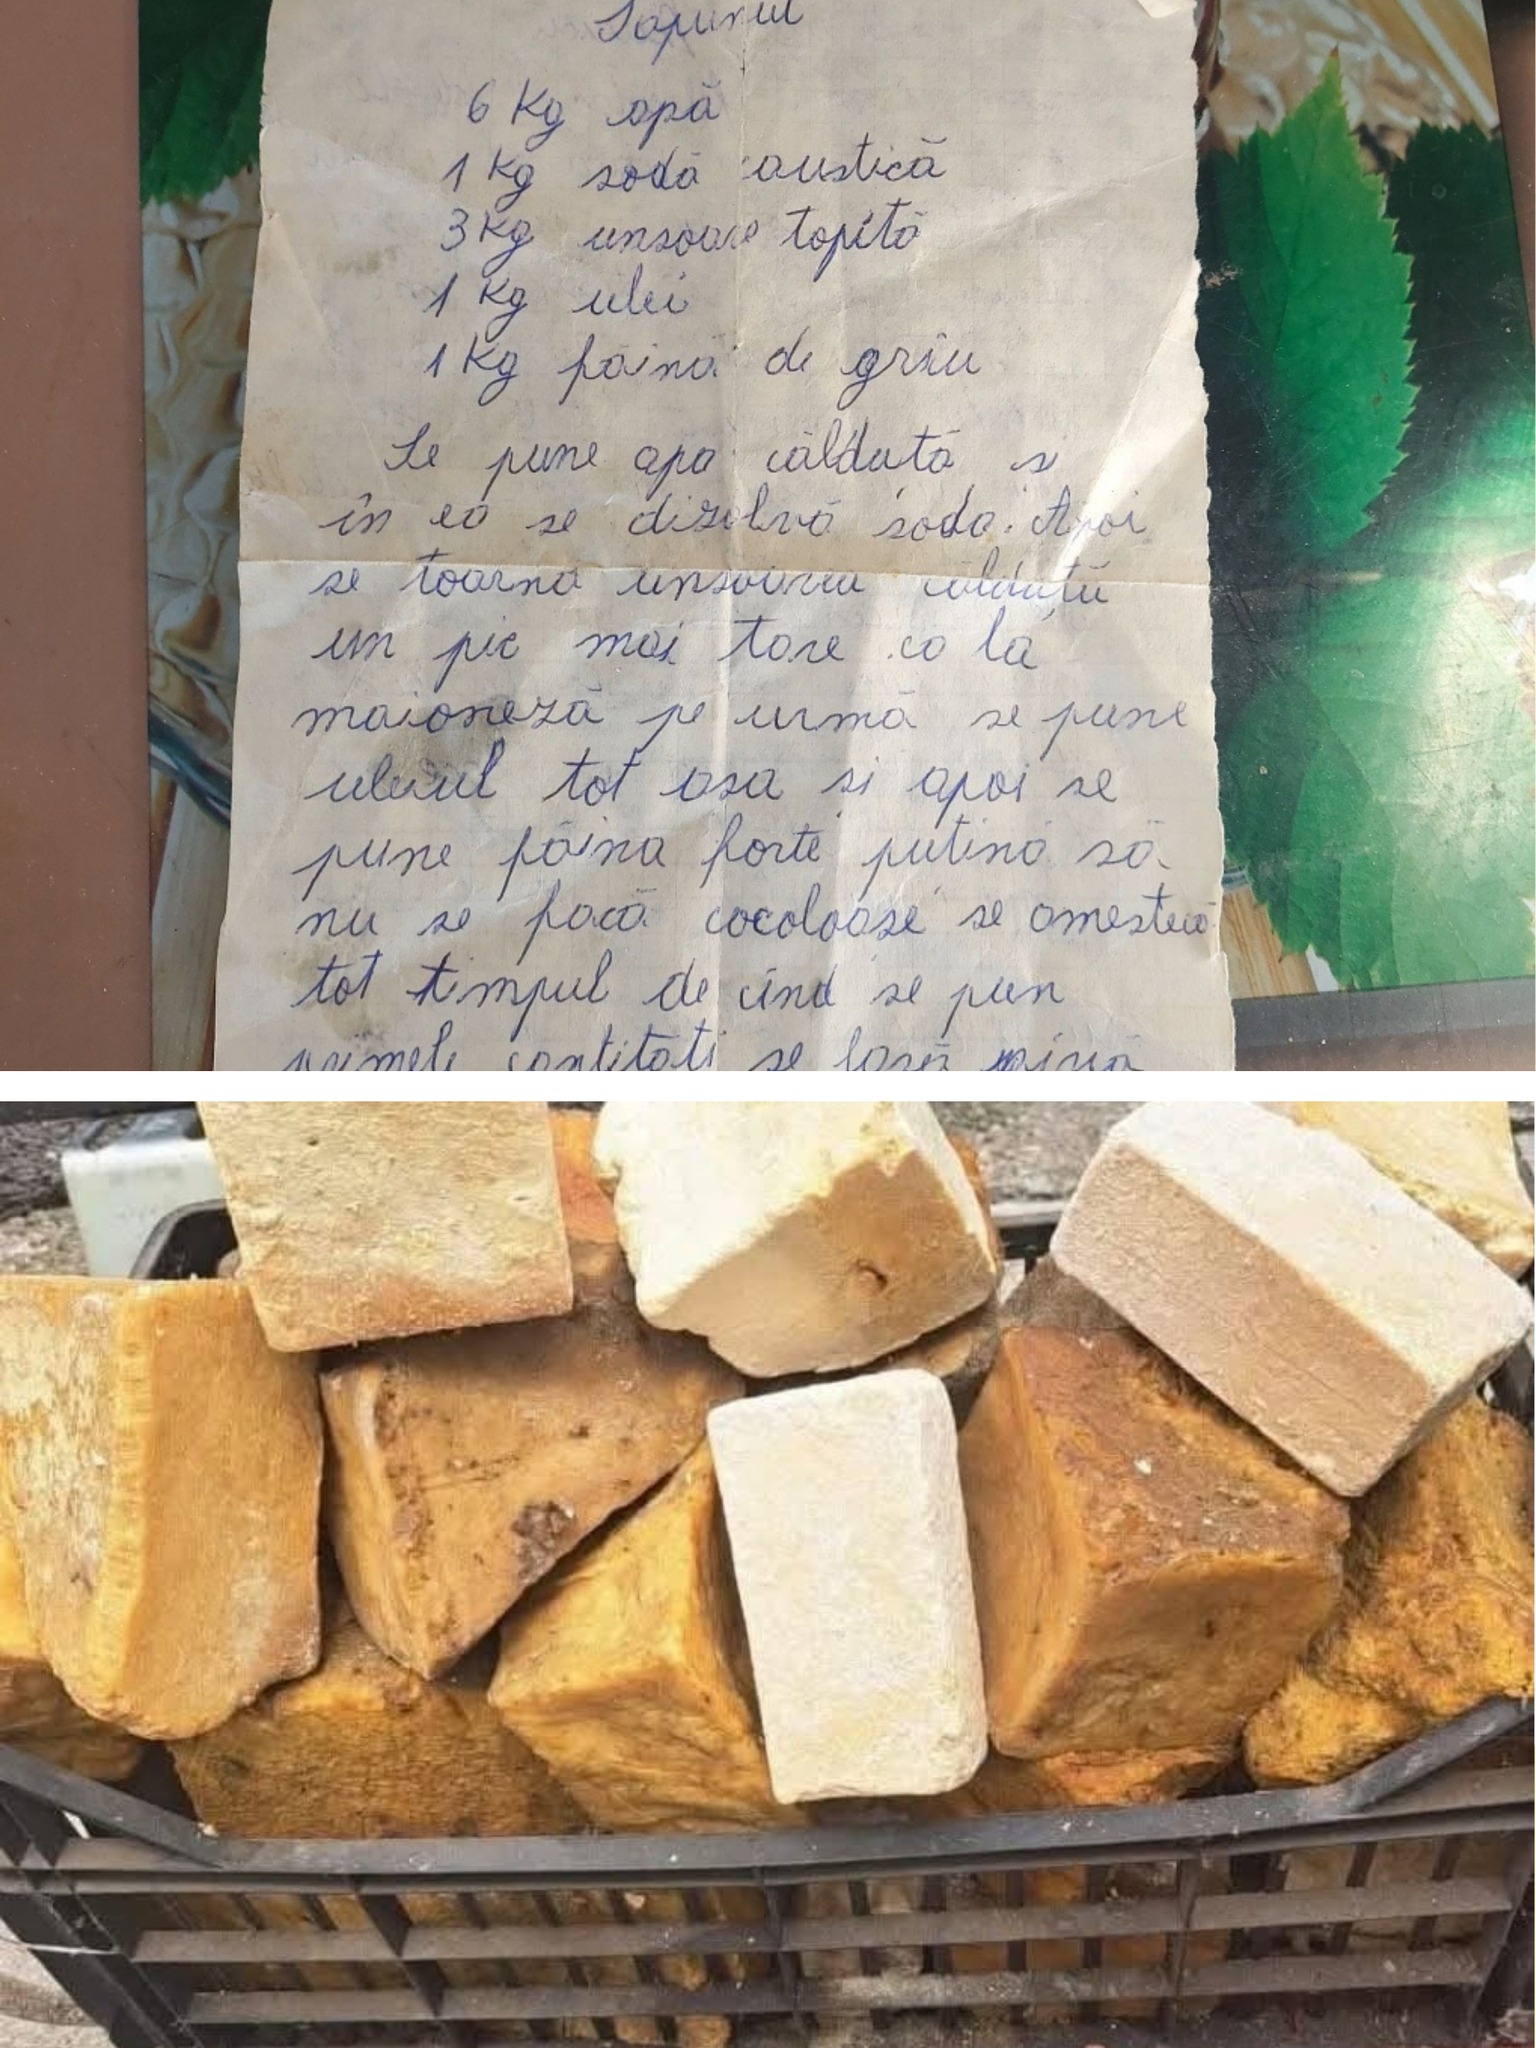 Sopunul
6 Kg apă
1 Kg sodă caustică
3 Kg unsoare topită
1 Kg ulei
1 Kg făină de grîu
Se pune apa călduță și
în ea se dizolvă soda. Apoi
se toarnă unsoarea călduță
un pic mai tare ca la
maioneză pe urmă se pune
uleiul tot asa si apoi se
pune făina forte puțină să
nu se facă cocoloase se amestecă
tot timpul de cînd se pun
primele cantități se lasă pînă